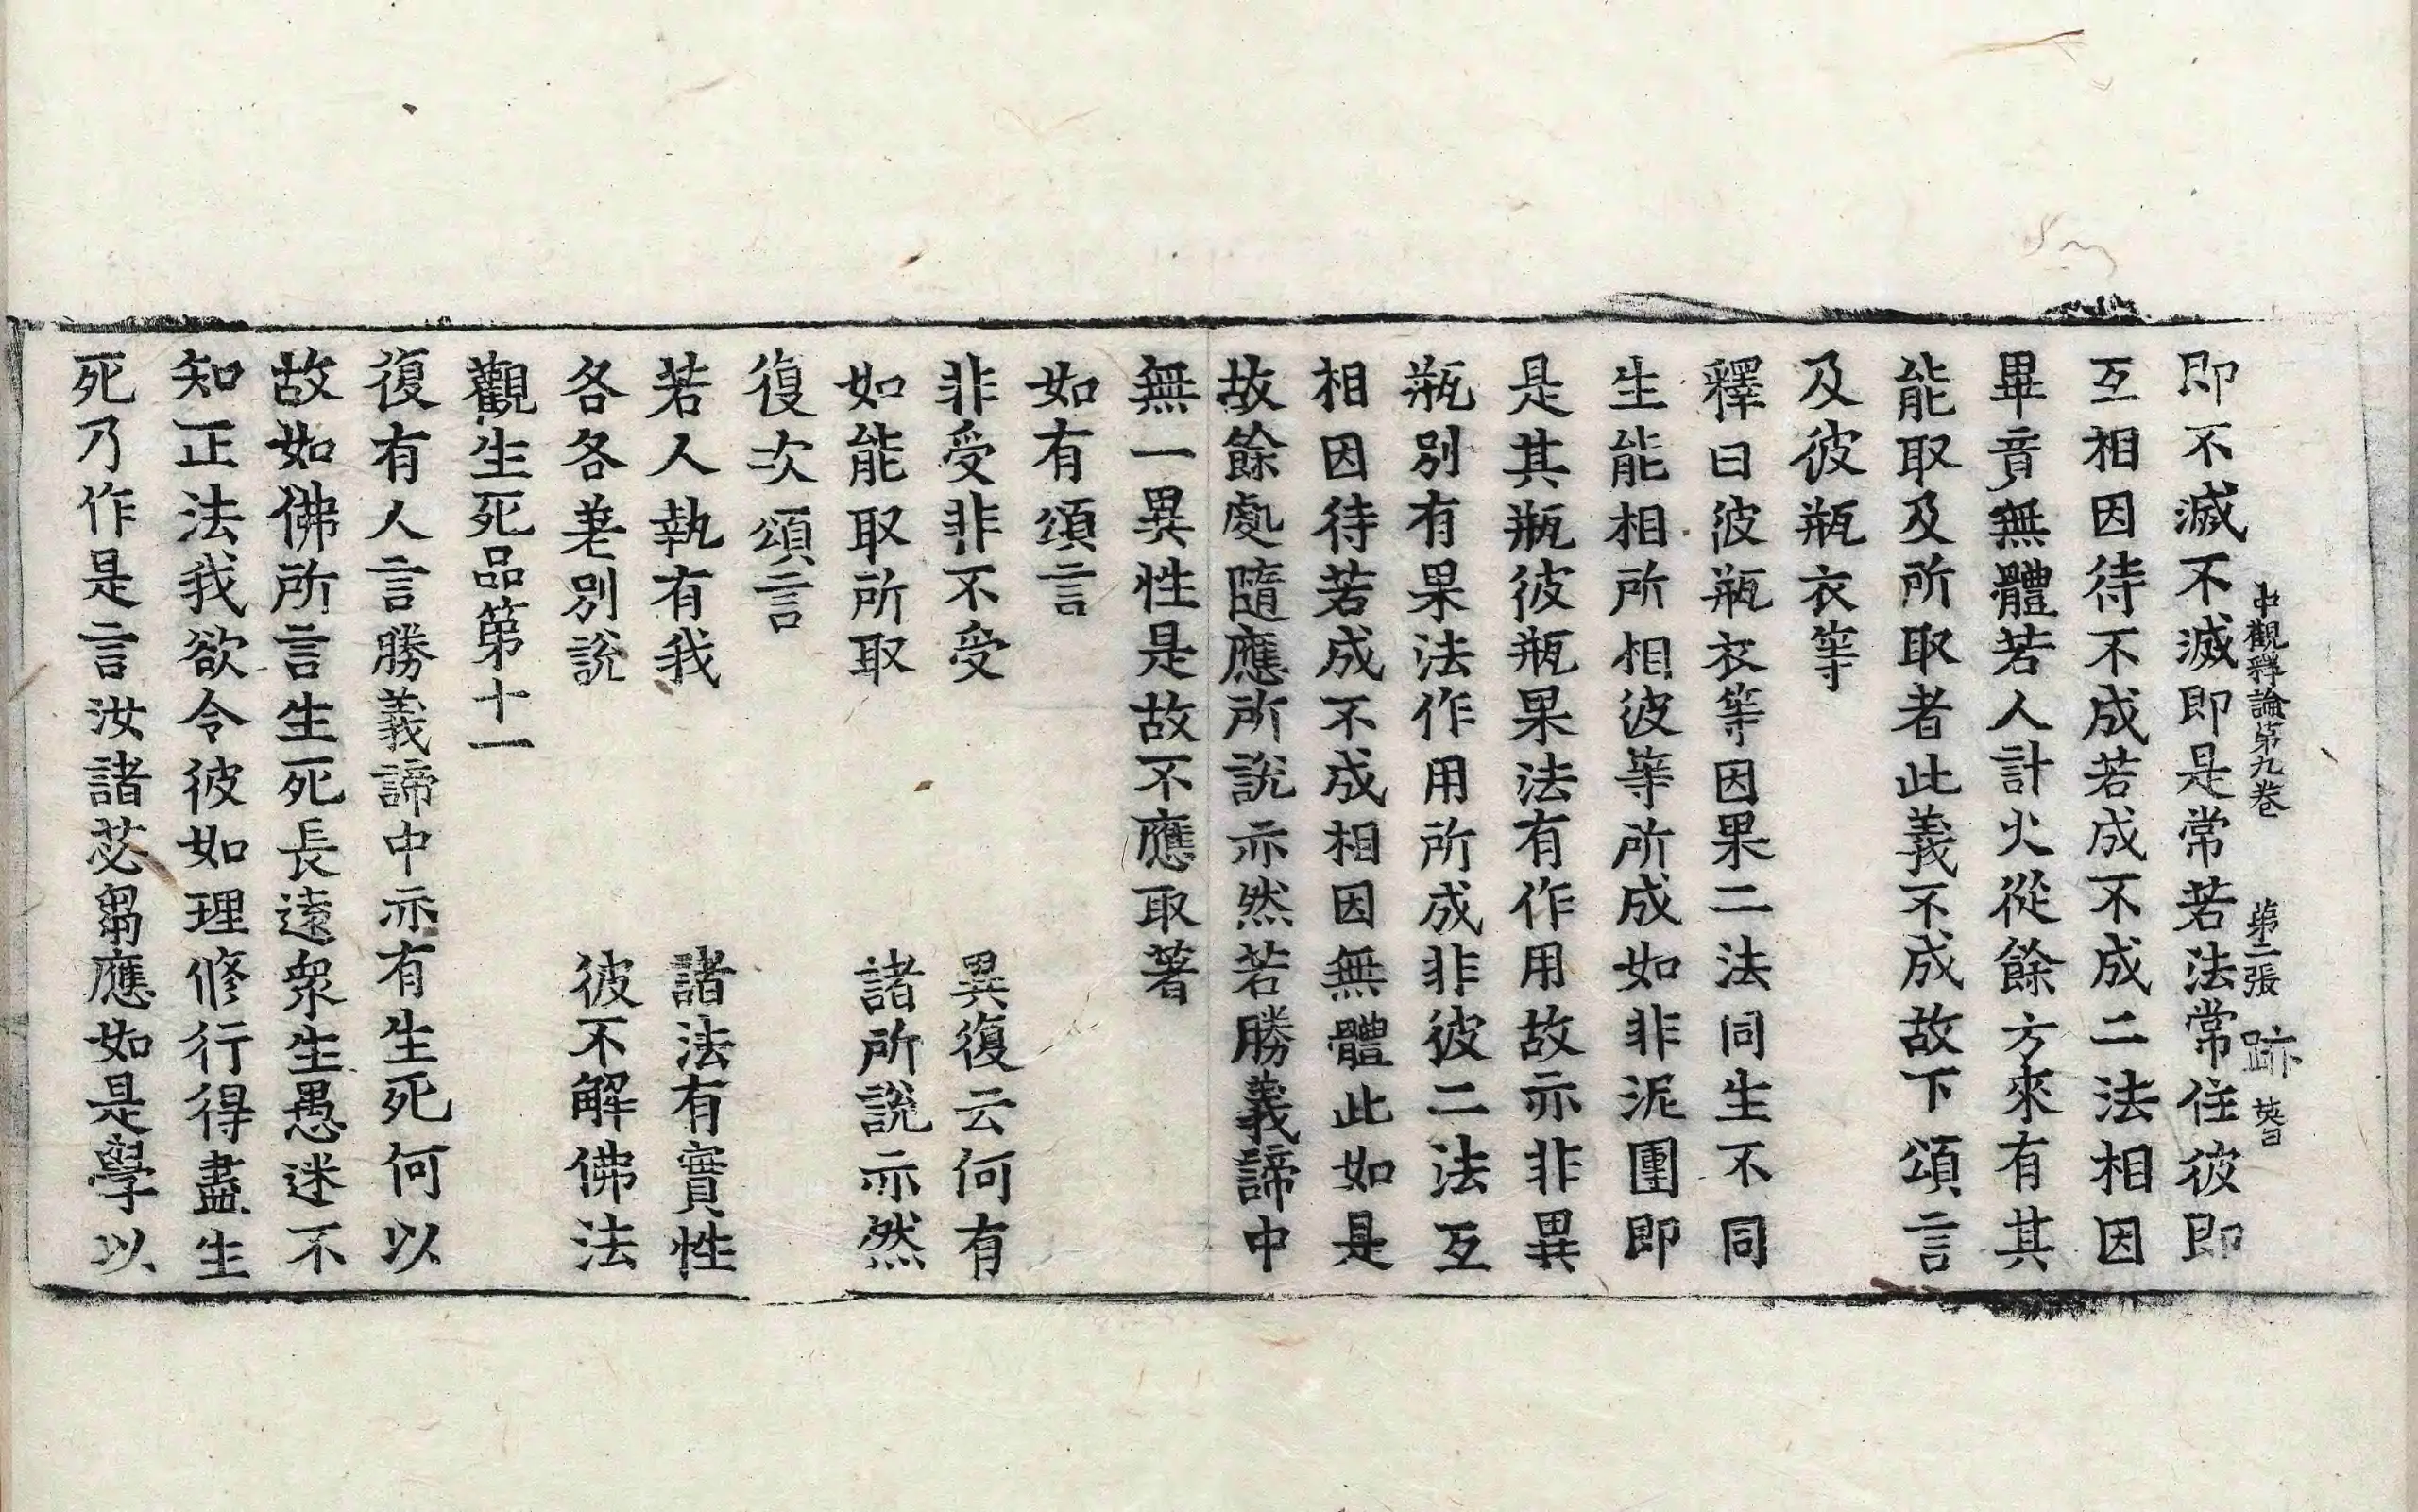 中觀釋論第九卷 第二張 跡
即不滅不滅即是常若法常住彼即
互相因待不成若成不成二法相因
畢竟無體若人計火從餘方來有其
能取及所取者此義不成故下頌言
及彼瓶衣等
釋曰彼瓶衣等因果二法同生不同
生能相所相彼等所成如非泥團即
是其瓶彼瓶果法有作用故亦非異
瓶別有果法作用所成非彼二法互
相因待若成不成相因無體此如是
故餘處隨應所說亦然若勝義諦中
無一異性是故不應取著
如有頌言
非受非不受 異復云何有
如能取所取 諸所說亦然
復次頌言
若人執有我 諸法有實性
各各差別說 彼不解佛法
觀生死品第十一
復有人言勝義諦中亦有生死何以
故如佛所言生死長遠眾生愚迷不
知正法我欲令彼如理修行得盡生
死乃作是言汝諸苾芻應如是學以